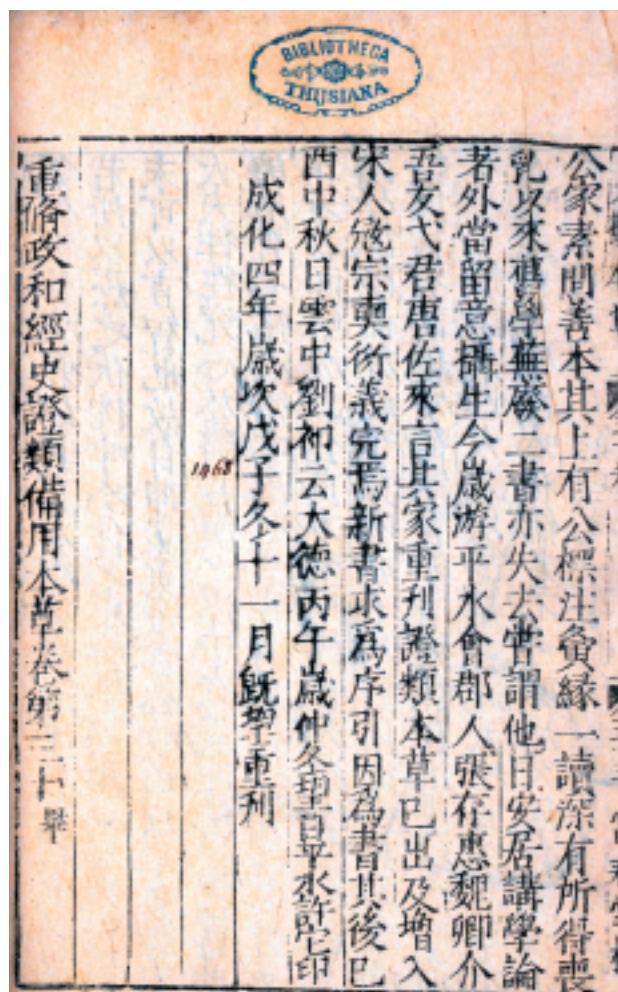 BIBLIOTHECA
THIJSIANA
公家素間善本其上有公標注夤縁一讀深有所得喪
乱以來舊學蕪廢二書亦失去嘗謂他日安居講學論
著外當留意攝生今歲游平水會郡人張存惠魏卿介
吾友弋君唐佐來言其家重刋證類本草已出及増入
宋人寇宗奭衍義完焉新書求為序引因為書其後已
酉中秋日雲中劉祁云大德丙午歲仲冬望日平水許宅印
成化四年歲次戊子冬十一月既望重刋
1468
重脩政和經史證類備用本草卷第三十 畢